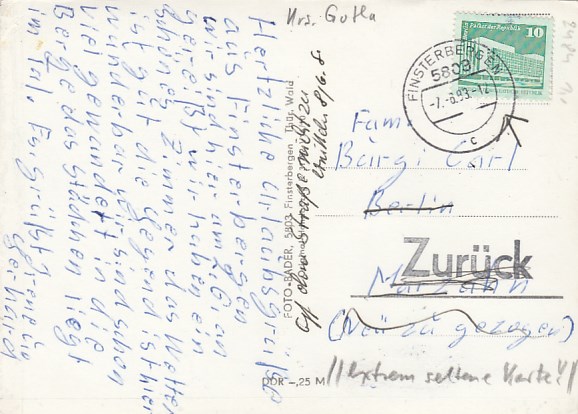 Krs. Gotha
Palast der Republik
10
FINSTERBERGEN
5803
-7.-6.83.-12
c
Herzliche Urlaubsgrüße
aus Finsterbergen
wir sind hier am
gereißt wir haben ein
schönes Zimmer das Wetter
ist gut die Gegend ist hier
wunderbar wir sind schon
viel gewandert in die
Berge das Städtchen liegt
im Tal. Es grüßt Irene u.
Gerhard
FOTO-BÄDER, 5803 Finsterbergen Thür. Wald
DDR -,25 M
auf dem Straße
8/6.8
Fam.
Bürgi Carl
Berlin
Zurück
Marzahn
(Neu zu gezogen)
//extrem seltene Karte!//